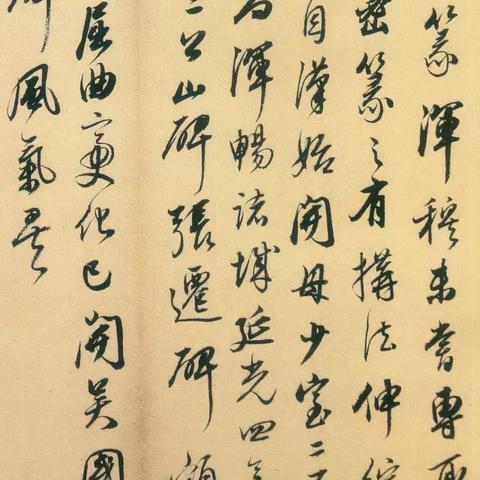 篆渾穆未嘗專
密篆之有搆法伸
自漢始開母少室二
為渾暢諸城延光四年
公山碑張遷碑額
屈曲變化已開吳國
風氣矣